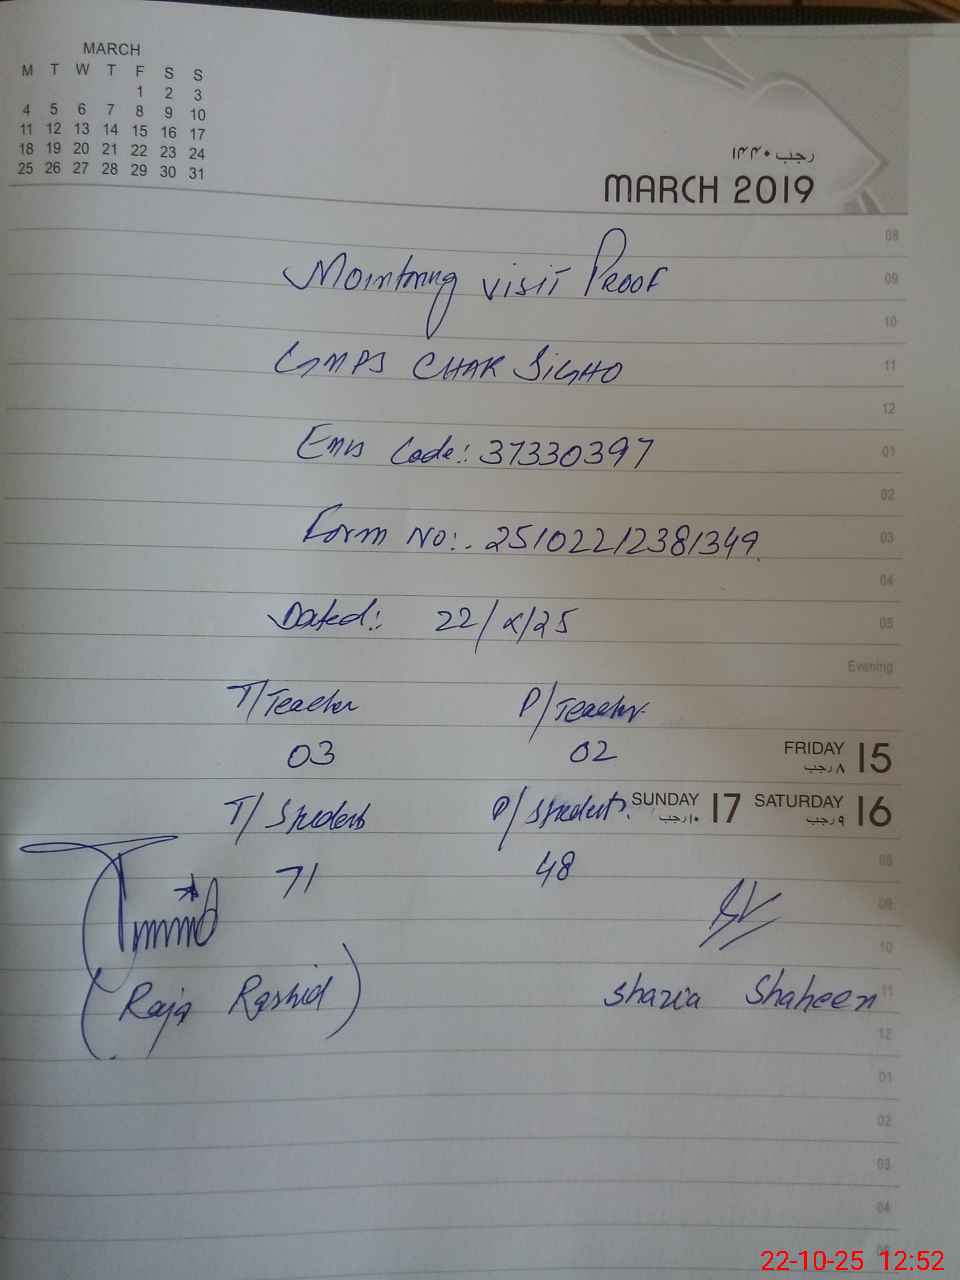 MARCH
M T W T F S S
1 2 3
4 5 6 7 8 9 10
11 12 13 14 15 16 17
18 19 20 21 22 23 24
25 26 27 28 29 30 31
رجب ١٤٤٠
MARCH 2019
08
Mointoring visit Proof
09
10
GMPS CHAK SIGHO
11
12
Emis Code: 37330397
01
02
Form No:. 25102212381349
03
04
Dated: 22/x/25
05
Evening
T/Teacher P/Teacher
03 02
FRIDAY 15
٨ رجب
T/Students P/Students
SUNDAY 17 SATURDAY 16
١٠ رجب ٩ رجب
71 48
08
09
10
(Raja Rashid) Shazia Shaheen
11
12
01
02
03
04
22-10-25 12:52